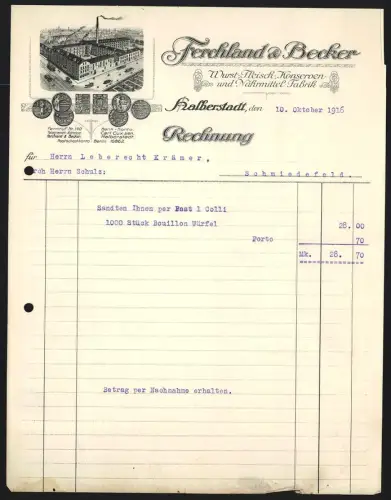 Ferchland & Becker
Wurst-Fleisch-Konserven-
und Nährmittel-Fabrik
Halberstadt, den 10. Oktober 1916
Fernruf Nr. 140
Ferchland & Becker,
Halberstadt
Rechnung
für Herrn Leberecht Krämer,
durch Herrn Schulz: Schmiedefeld.
Sandten Ihnen per Post 1 Colli
1000 Stück Bouillon Würfel 28. 00
Porto 70
Mk. 28. 70
Betrag per Nachnahme erhalten.